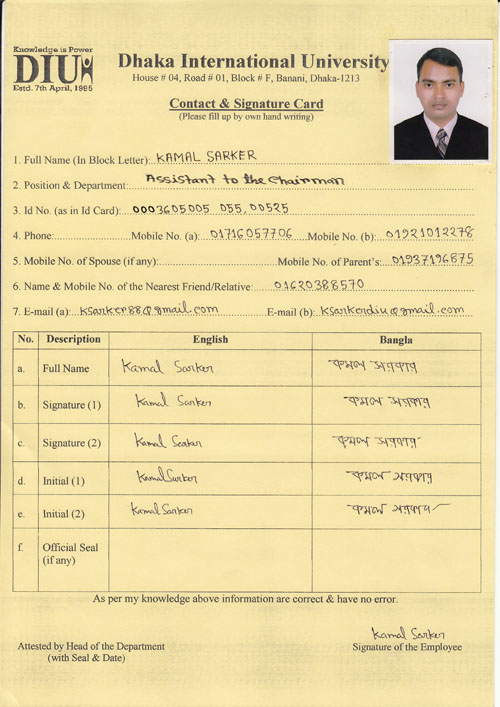 Knowledge is Power
DIU
Estd. 7th April, 1995
Dhaka International University
House # 04, Road # 01, Block # F, Banani, Dhaka-1213
Contact & Signature Card
(Please fill up by own hand writing)
1. Full Name (In Block Letter): KAMAL SARKER
2. Position & Department: Assistant to the Chairman
3. Id No. (as in Id Card): 0003605005 055, 00525
4. Phone: Mobile No. (a): 01716057706 Mobile No. (b): 01921012278
5. Mobile No. of Spouse (if any): Mobile No. of Parent's: 01937196875
6. Name & Mobile No. of the Nearest Friend/Relative: 01620388570
7. E-mail (a): ksarker88@gmail.com E-mail (b): ksarkerdiu@gmail.com
No. Description English Bangla
a. Full Name Kamal Sarker কমল সরকার
b. Signature (1) Kamal Sarker কমল সরকার
c. Signature (2) Kamal Sarker কমল সরকার
d. Initial (1) Kamal Sarker কমল সরকার
e. Initial (2) Kamal Sarker কমল সরকার
f. Official Seal
(if any)
As per my knowledge above information are correct & have no error.
Kamal Sarker
Attested by Head of the Department Signature of the Employee
(with Seal & Date)